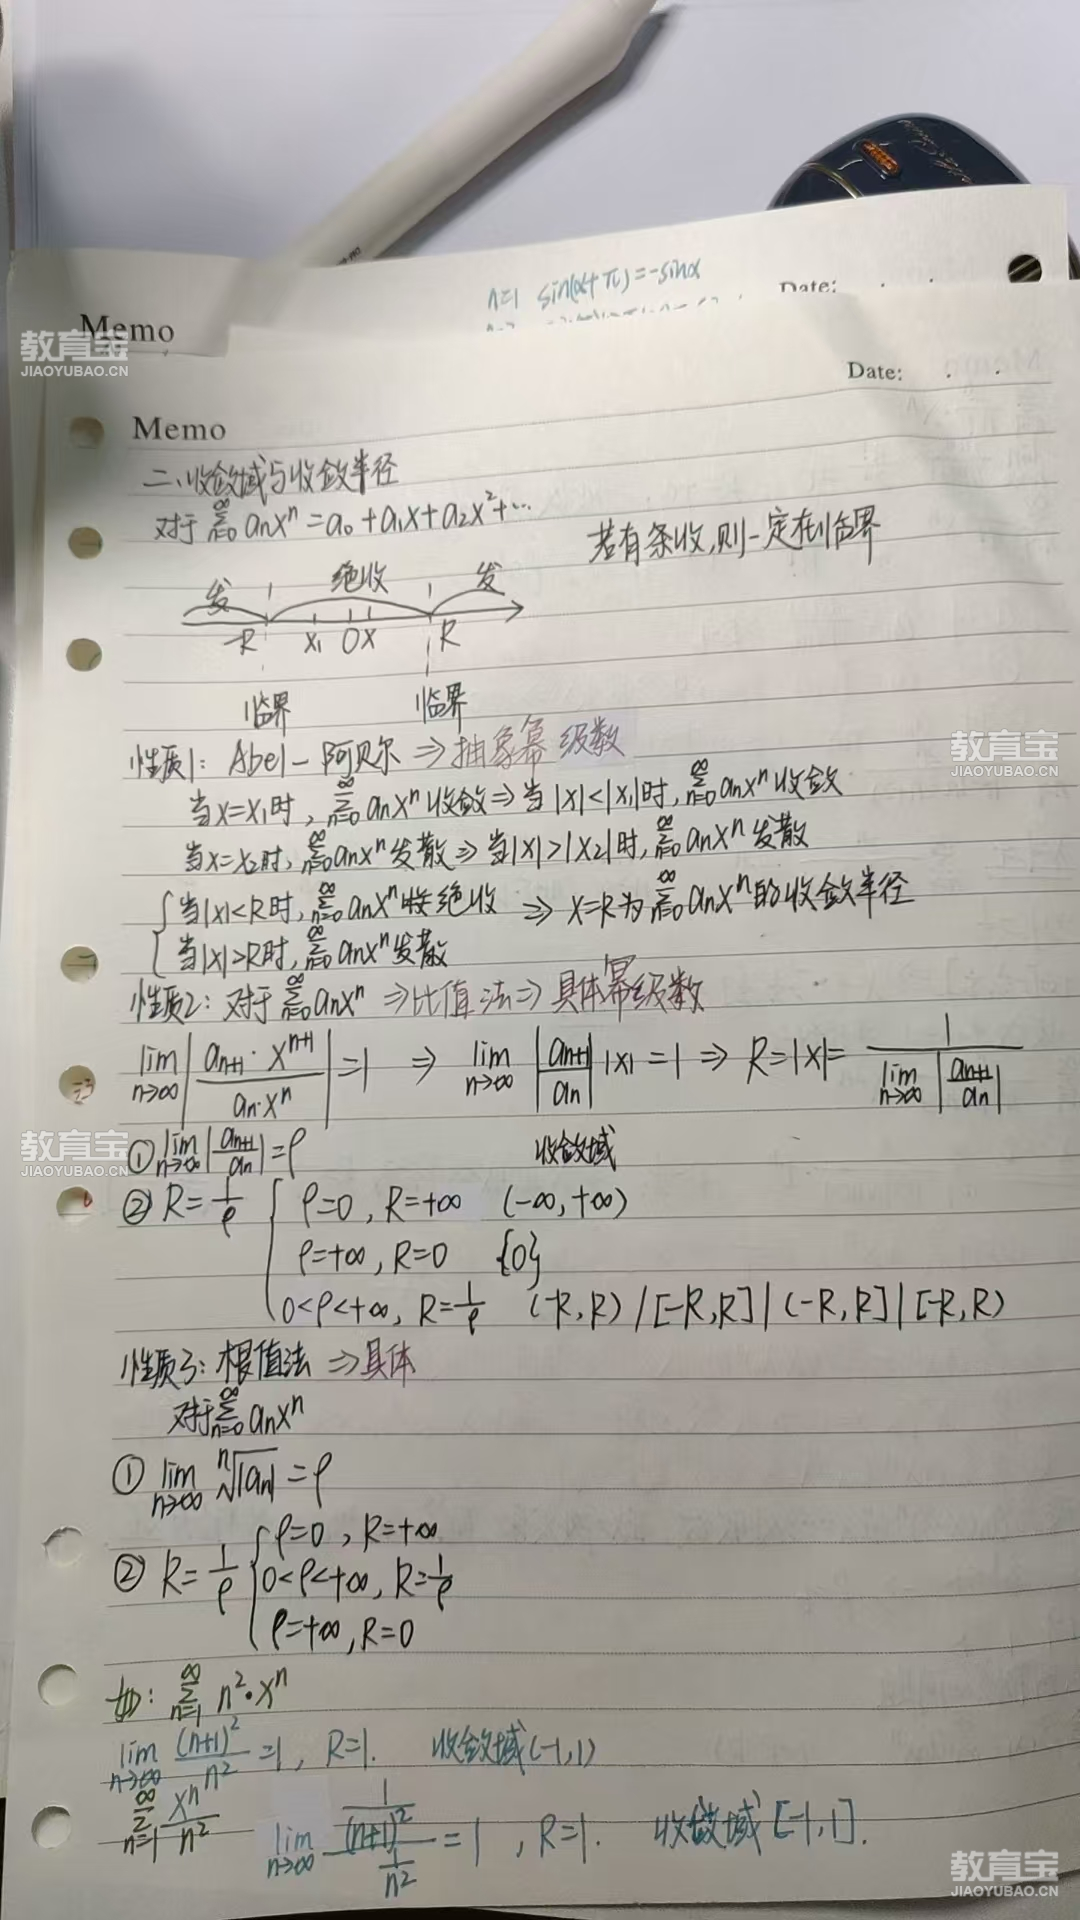 n=1 sin(α+π)=-sinα
Date:
Memo
教育宝
JIAOYUBAO.CN
Date:
Memo
二、收敛域与收敛半径
对于 ∑(n=0→∞) aₙxⁿ = a₀ + a₁x + a₂x² + …
若有条收,则一定在临界
发 绝收 发
-R x₁ 0 x R
临界 临界
教育宝
JIAOYUBAO.CN
性质1: Abel - 阿贝尔 ⇒ 抽象幂级数
当x=x₁时, ∑(n=0→∞) aₙxⁿ收敛 ⇒ 当|x|<|x₁|时, ∑(n=0→∞) aₙxⁿ收敛
当x=x₂时, ∑(n=0→∞) aₙxⁿ发散 ⇒ 当|x|>|x₂|时, ∑(n=0→∞) aₙxⁿ发散
{ 当|x|<R时, ∑(n=0→∞) aₙxⁿ绝收 ⇒ x=R为∑(n=0→∞) aₙxⁿ的收敛半径
当|x|>R时, ∑(n=0→∞) aₙxⁿ发散
性质2: 对于 ∑(n=0→∞) aₙxⁿ ⇒ 比值法 ⇒ 具体幂级数
lim(n→∞) |aₙ₊₁·xⁿ⁺¹ / aₙ·xⁿ| = 1 ⇒ lim(n→∞) |aₙ₊₁/aₙ| |x| = 1 ⇒ R=|x|= 1 / lim(n→∞) |aₙ₊₁/aₙ|
教育宝
JIAOYUBAO.CN
① lim(n→∞) |aₙ₊₁/aₙ| = ρ 收敛域
② R=1/ρ { ρ=0, R=+∞ (-∞,+∞)
ρ=+∞, R=0 {0}
0<ρ<+∞, R=1/ρ (-R,R) / [-R,R] | (-R,R] | [-R,R)
性质3: 根值法 ⇒ 具体
对于∑(n=0→∞) aₙxⁿ
① lim(n→∞) ⁿ√|aₙ| = ρ
② R=1/ρ { ρ=0, R=+∞
0<ρ<+∞, R=1/ρ
ρ=+∞, R=0
如: ∑(n=1→∞) n²·xⁿ
lim(n→∞) (n+1)²/n² = 1, R=1. 收敛域(-1,1)
∑(n=1→∞) xⁿ/n² lim(n→∞) (1/(n+1)²)/(1/n²) = 1, R=1. 收敛域[-1,1].
教育宝
JIAOYUBAO.CN